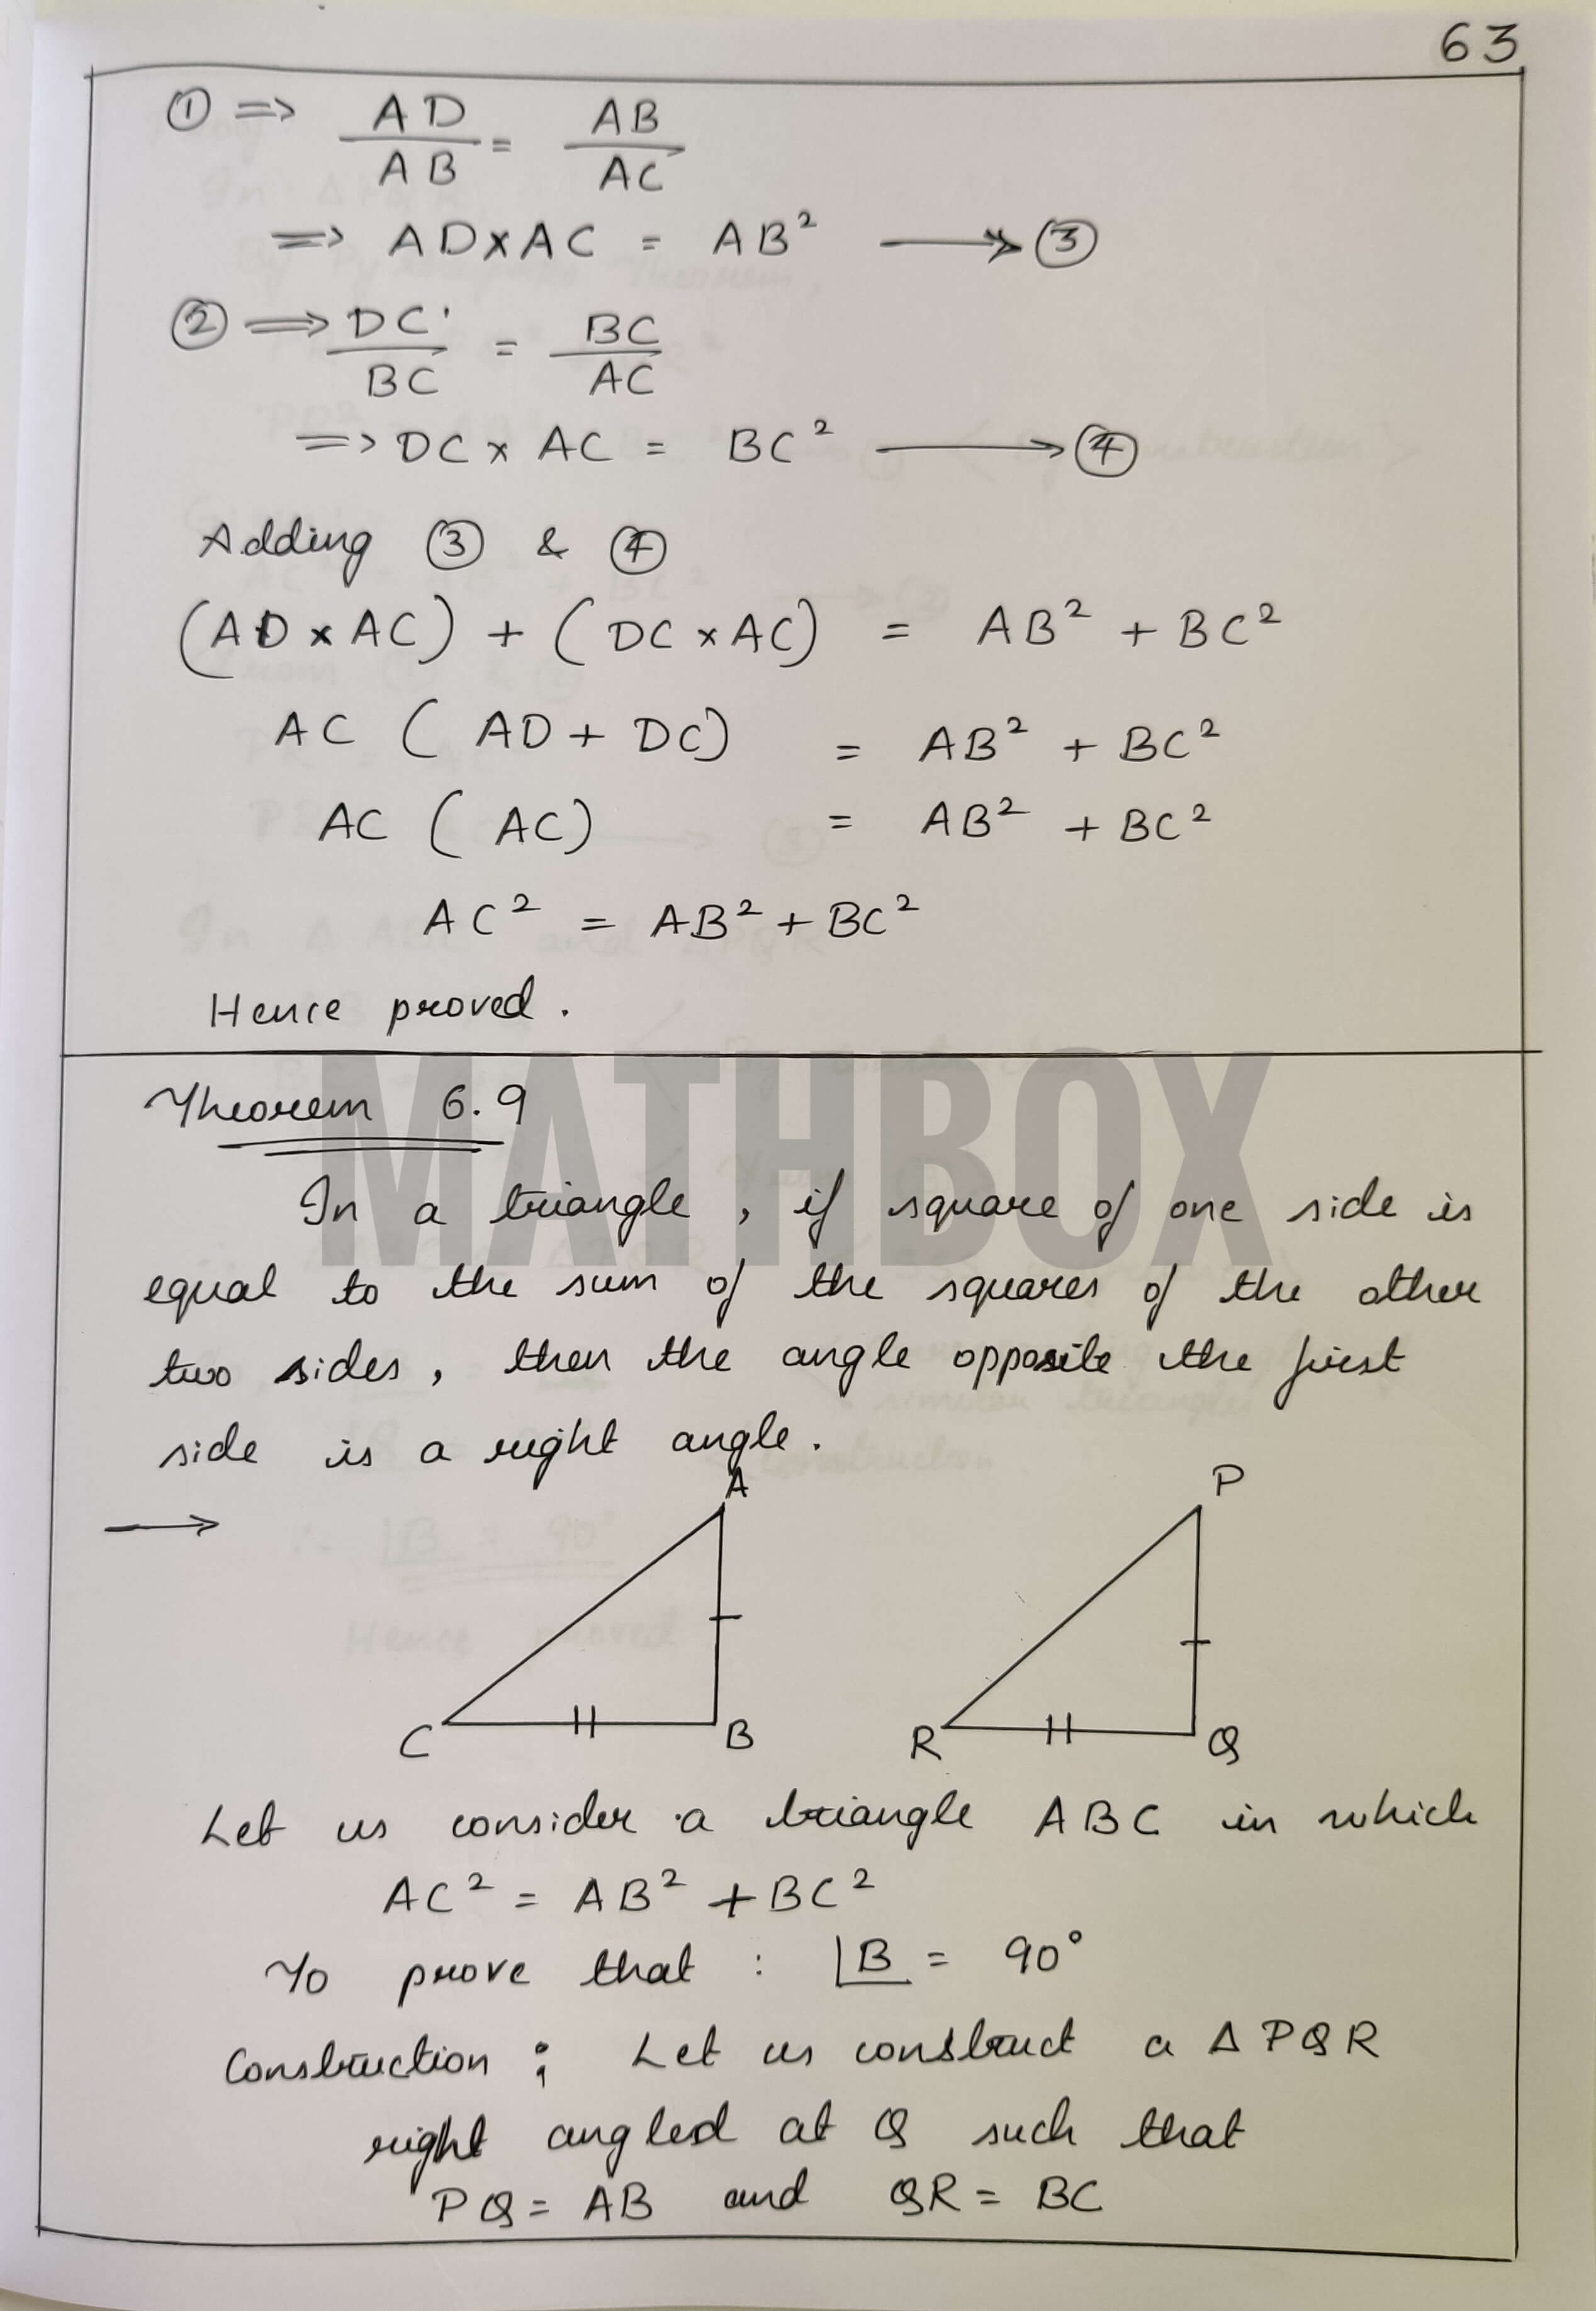 63
① => AD/AB = AB/AC
=> AD×AC = AB² ⟶ ③
② => DC/BC = BC/AC
=> DC × AC = BC² ⟶ ④
Adding ③ & ④
(AD × AC) + (DC × AC) = AB² + BC²
AC (AD + DC) = AB² + BC²
AC (AC) = AB² + BC²
AC² = AB² + BC²
Hence proved.
MATHBOX
Theorem 6.9
In a triangle, if square of one side is
equal to the sum of the squares of the other
two sides, then the angle opposite the first
side is a right angle.
→
A P
C B R Q
Let us consider a triangle ABC in which
AC² = AB² + BC²
To prove that : ∠B = 90°
Construction ; Let us construct a Δ PQR
right angled at Q such that
PQ = AB and QR = BC